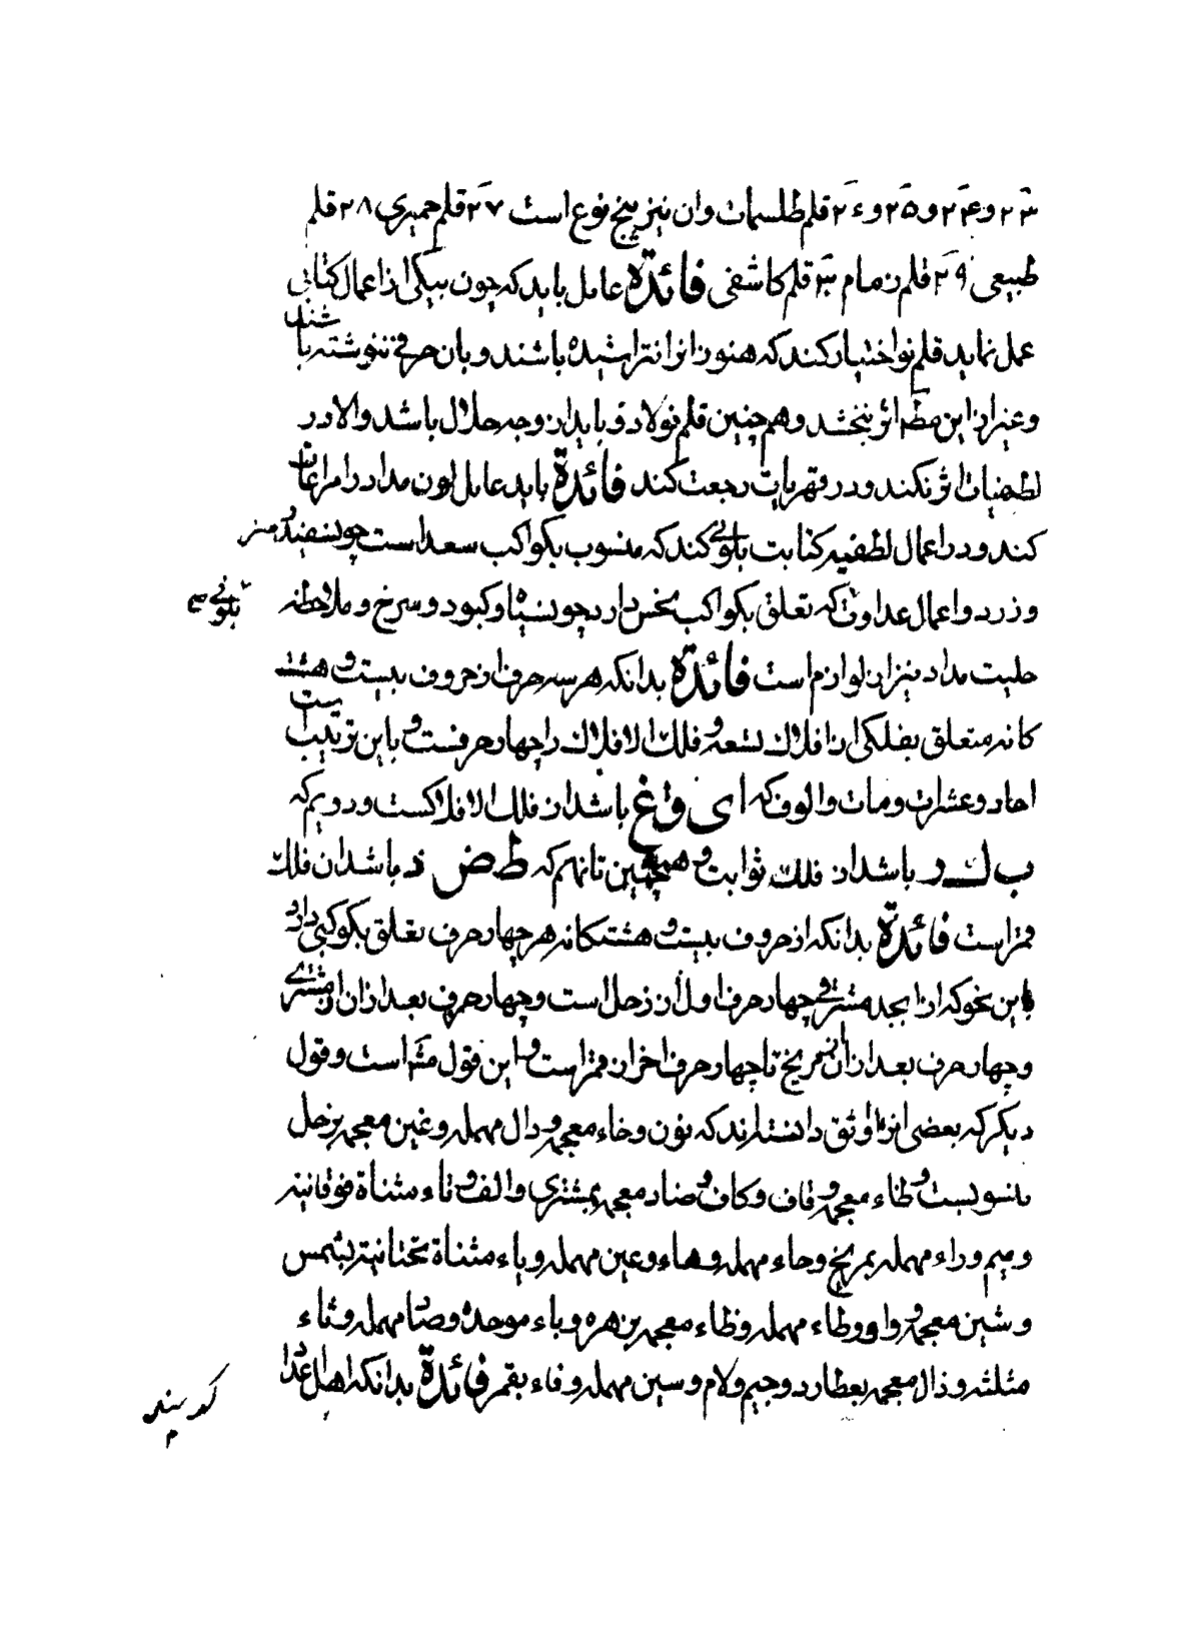 ۲۳ و ۲۴ و ۲۵ و ۲۶ قلم طلسمات وان نیز پنج نوع است ۲۷ قلم حمیری ۲۸ قلم
طبیعی ۲۹ قلم زمام ۳۰ قلم کاشفی فائدة عامل باید که چون بیکی از اعمال کتابی
عمل نماید قلم نو اختیار کند که هنوز انرا نتراشیده باشند و بان حرفی ننوشته باشند
و غیر از این مطم اثر نبخشد و هم چنین قلم فولاد و باید از وجه حلال باشد والا در
لطفیات اثر نکند و در قهریات رجعت کند فائدة باید عامل لون مداد را مراعات
کند و در اعمال لطفیه کتابت بلونی کند که منسوب بکواکب سعد است چون سفید و سبز
و زرد و اعمال عداوت که تعلق بکواکب نحس دارد چون سیاه و کبود و سرخ و ملاحظه
بلونی صح
حلیت مداد نیز از لوازم است فائدة بدانکه هر سه حرف از حروف بیست و هشت
کانه متعلق بفلکی از افلاک تسعه و فلک الافلاک را چهار حرفست و باین ترتیبست
احاد و عشرات و مات و الوف که ا ی ق غ باشد از فلک الافلاکست و دویم که
ب ک ر باشد از فلک ثوابت و همچنین تا نهم که ط ض ظ باشد از فلک
قمر است فائدة بدانکه از حروف بیست و هشتکانه هر چهار حرف تعلق بکوکبی دارد
باین نحو که از ابجد مشرقی چهار حرف اول از زحل است و چهار حرف بعد از ان از مشتری
و چهار حرف بعد از ان از مریخ تا چهار حرف اخر از قمر است و این قول مشهر است و قول
دیکر که بعضی انرا اوثق دانسته‌اند که نون و خاء معجمه و دال مهمله و غین معجمه بزحل
منسوبست و ظاء معجمه و قاف و کاف و ضاد معجمه بمشتری و الف و تاء مثناة فوقانیه
و میم و راء مهمله بمریخ و حاء مهمله و هاء و عین مهمله و یاء مثناة تحتانیه بشمس
و شین معجمه و واو و طاء مهمله و ظاء معجمه بزهره و باء موحده و صاد مهمله و ثاء
مثلثه و ذال معجمه بعطارد و جیم و لام و سین مهمله و فاء بقمر فائدة بدانکه اهل عدا